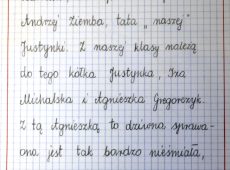 Andrzej Ziemba, tata „naszej"
Justynki. Z naszej klasy należą
do tego kółka Justynka, Iza
Michalska i Agnieszka Gregorczyk.
Z tą Agnieszką to dziwna sprawa-
ona jest tak bardzo nieśmiała,